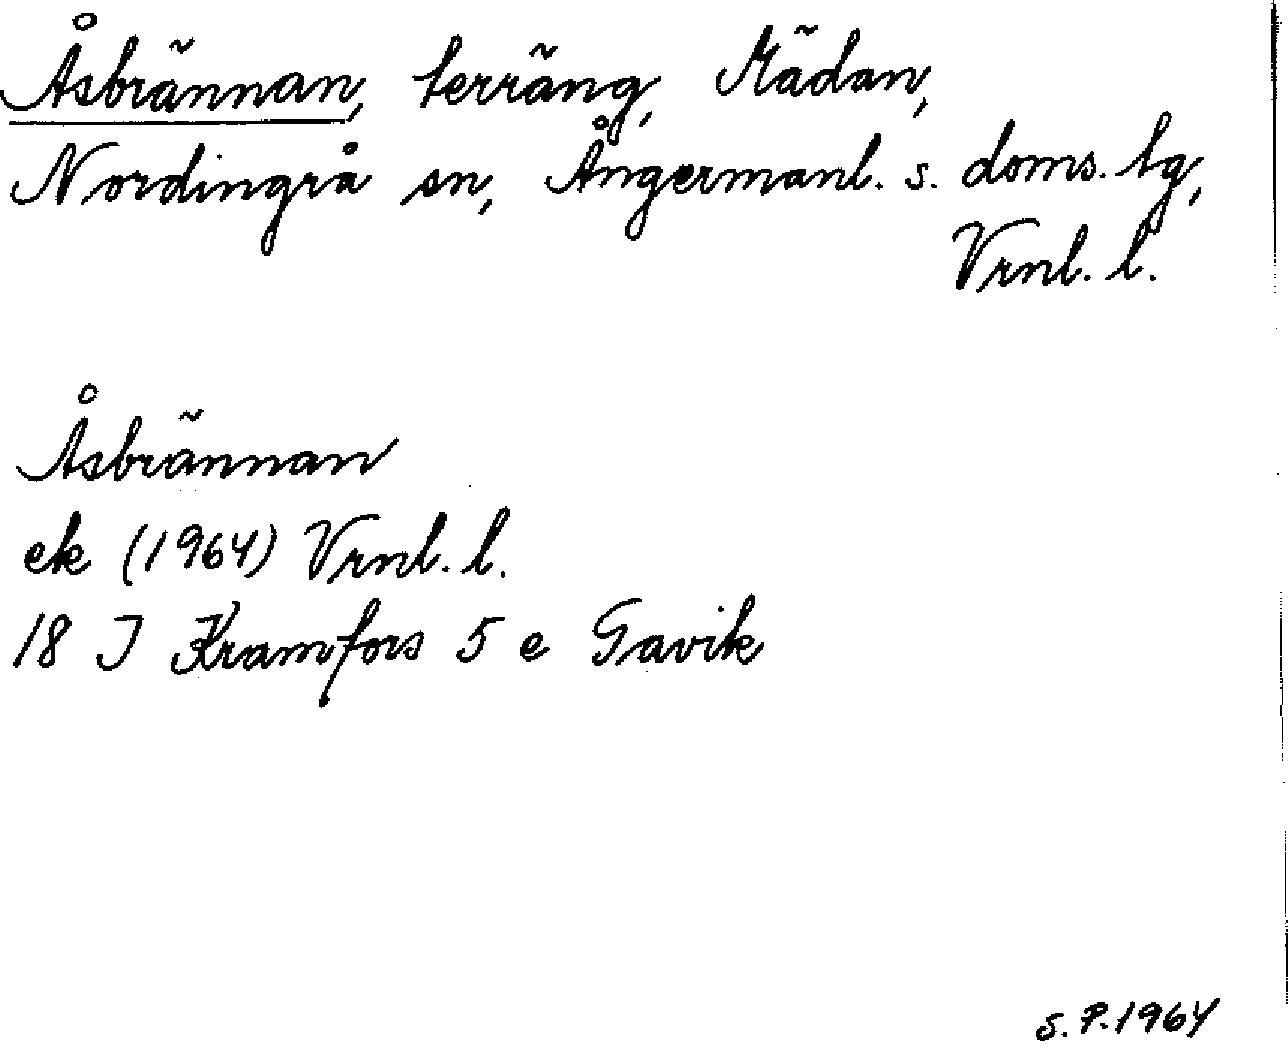 Åsbrännan, terräng, Mädan,
Nordingrå sn, Ångermanl. s. doms. tg,
Vrnl. l.
Åsbrännan
ek (1964) Vrnl. l.
18 J Kramfors 5 e Gavik
S. P. 1964